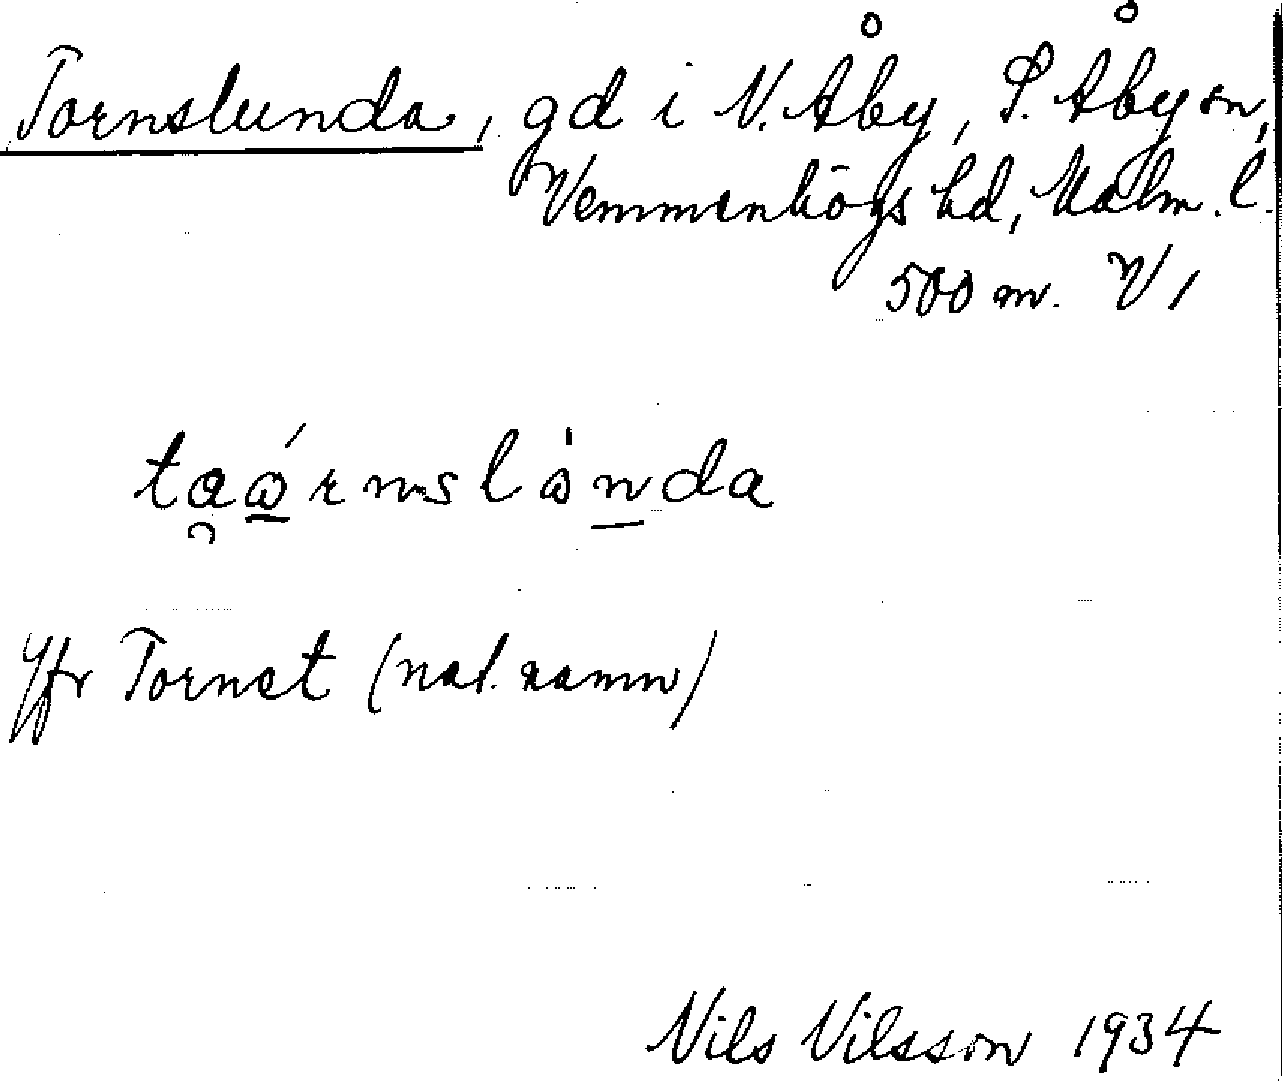 Tornslunda, gd i N. Åby, S. Åby sn,
Vemmenhögs hd, Malm. l.
500 m. V/1
taårnslånda
Jfr Tornet (nat. namn)
Nils Nilsson 1934